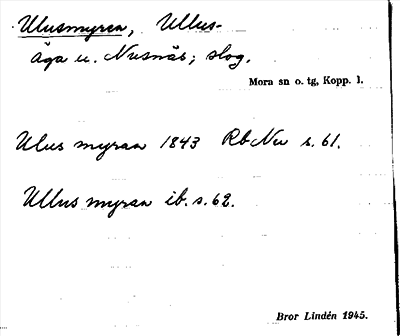 Ulusmyren, Ullus-
äga u. Nusnäs; slog.
Mora sn o. tg, Kopp. l.
Ulus myran 1843 Rb Nu s. 61.
Ullus myran ib. s. 62.
Bror Lindén 1945.